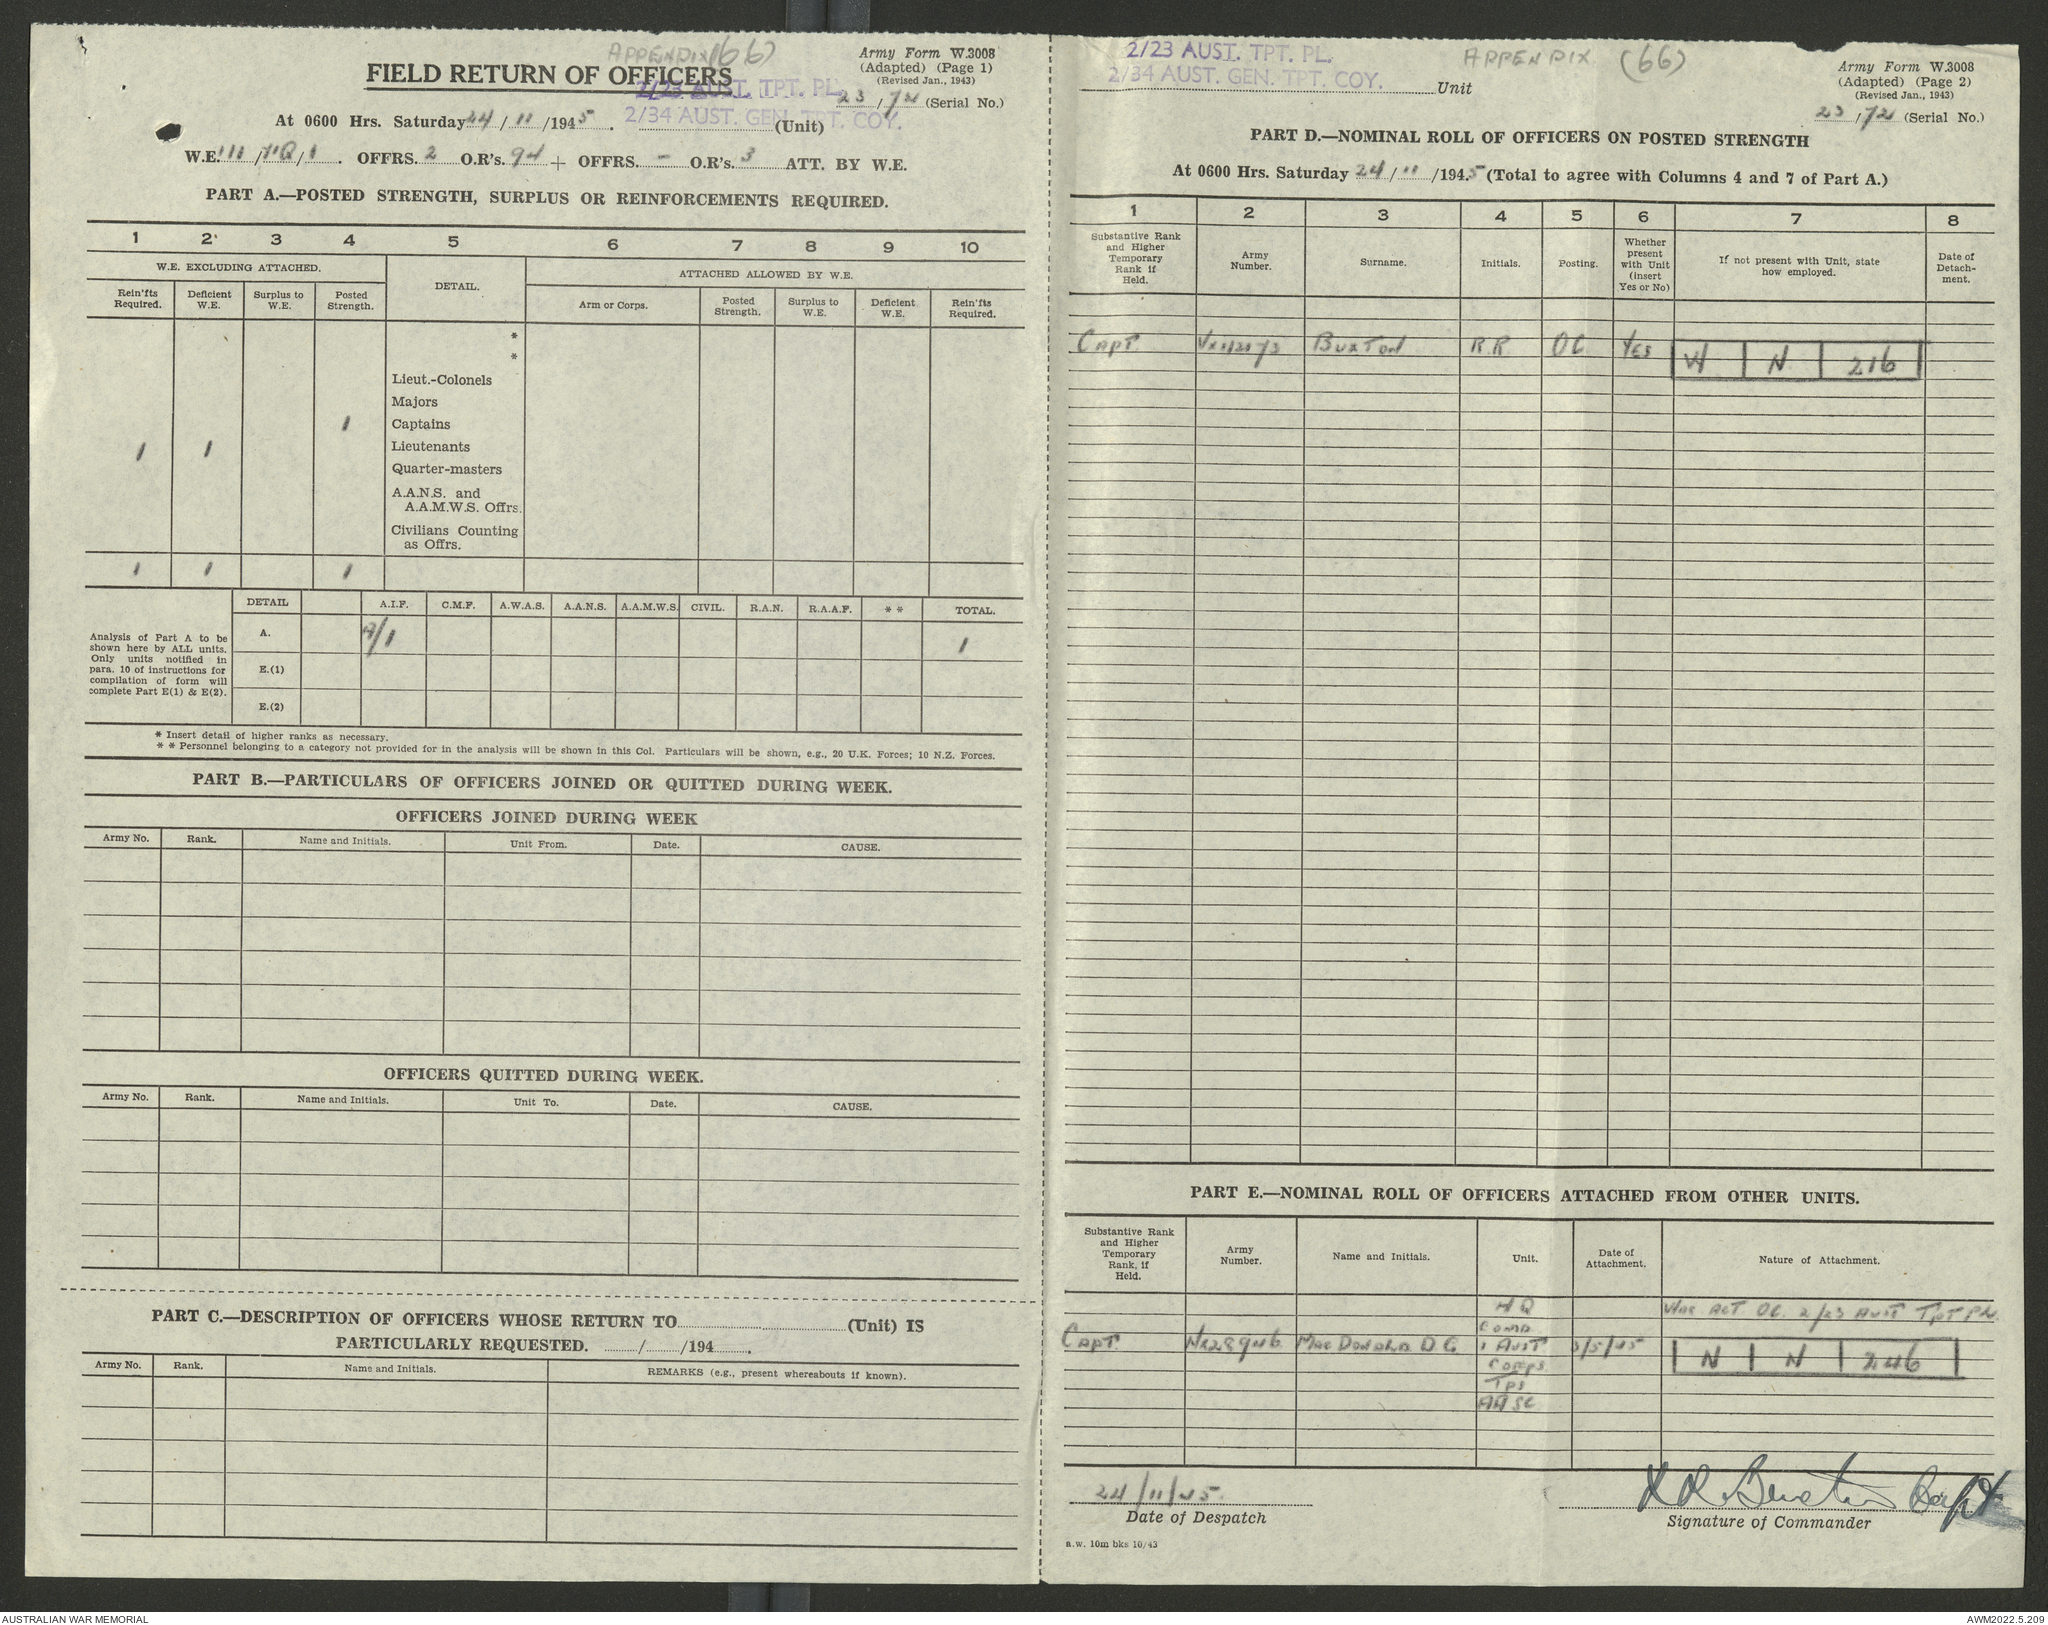 APPENDIX (66)
Army Form W.3008
(Adapted) (Page 1)
(Revised Jan., 1943)
FIELD RETURN OF OFFICERS
2/23 AUST. TPT. PL.
23/72 (Serial No.)
2/34 AUST. GEN. TPT. COY.
At 0600 Hrs. Saturday 24/11/1945. (Unit)
W.E. 111/ /1. OFFRS. 2 O.R's. 94 + OFFRS. - O.R's. 3 ATT. BY W.E.
PART A.—POSTED STRENGTH, SURPLUS OR REINFORCEMENTS REQUIRED.
1 2 3 4 5 6 7 8 9 10
W.E. EXCLUDING ATTACHED. DETAIL. ATTACHED ALLOWED BY W.E.
Rein'fts Required. Deficient W.E. Surplus to W.E. Posted Strength. Arm or Corps. Posted Strength. Surplus to W.E. Deficient W.E. Rein'fts Required.
*
*
Lieut.-Colonels
Majors
1 Captains
1 1 Lieutenants
Quarter-masters
A.A.N.S. and
A.A.M.W.S. Offrs.
Civilians Counting
as Offrs.
1 1 1
DETAIL A.I.F. C.M.F. A.W.A.S. A.A.N.S. A.A.M.W.S. CIVIL. R.A.N. R.A.A.F. * * TOTAL.
Analysis of Part A to be
shown here by ALL units.
Only units notified in
para. 10 of instructions for
compilation of form will
complete Part E(1) & E(2).
A. /1 1
E.(1)
E.(2)
* Insert detail of higher ranks as necessary.
* * Personnel belonging to a category not provided for in the analysis will be shown in this Col. Particulars will be shown, e.g., 20 U.K. Forces; 10 N.Z. Forces.
PART B.—PARTICULARS OF OFFICERS JOINED OR QUITTED DURING WEEK.
OFFICERS JOINED DURING WEEK
Army No. Rank. Name and Initials. Unit From. Date. CAUSE.
OFFICERS QUITTED DURING WEEK.
Army No. Rank. Name and Initials. Unit To. Date. CAUSE.
PART C.—DESCRIPTION OF OFFICERS WHOSE RETURN TO (Unit) IS
PARTICULARLY REQUESTED. / /194 .
Army No. Rank. Name and Initials. REMARKS (e.g., present whereabouts if known).
2/23 AUST. TPT. PL.
2/34 AUST. GEN. TPT. COY. Unit
APPENDIX (66)
Army Form W.3008
(Adapted) (Page 2)
(Revised Jan., 1943)
23/72 (Serial No.)
PART D.—NOMINAL ROLL OF OFFICERS ON POSTED STRENGTH
At 0600 Hrs. Saturday 24/11/1945 (Total to agree with Columns 4 and 7 of Part A.)
1 2 3 4 5 6 7 8
Substantive Rank and Higher Temporary Rank if Held. Army Number. Surname. Initials. Posting. Whether present with Unit (insert Yes or No) If not present with Unit, state how employed. Date of Detachment.
CAPT BUXTON R.R OC YES
N 216
PART E.—NOMINAL ROLL OF OFFICERS ATTACHED FROM OTHER UNITS.
Substantive Rank and Higher Temporary Rank, if Held. Army Number. Name and Initials. Unit. Date of Attachment. Nature of Attachment.
HQ ACT OC 2/23 AUST TPT PL.
COMD
CAPT NX28946 MACDONALD D G 1 AUST 3/5/45
CORPS N N 246
TPS
AASC
24/11/45
Date of Despatch
R R Buxton Capt
Signature of Commander
a.w. 10m bks 10/43
AUSTRALIAN WAR MEMORIAL
AWM2022.5.209